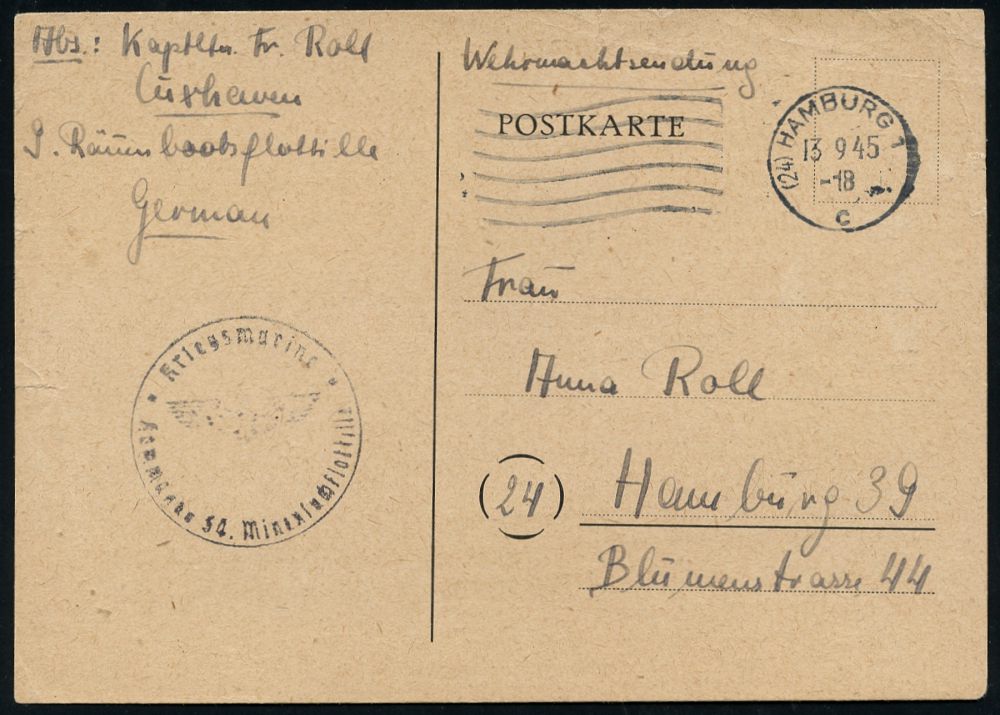 Abs.: Kaptltn. Fr. Roll
Cuxhaven
9. Räumbootsflottille
German
Kriegsmarine
Kommando 34. Minensuchflottille
Wehrmachtsendung
POSTKARTE
(24) HAMBURG 1
13 9 45
-18
c
Frau
Anna Roll
(24) Hamburg 39
Blumenstrasse 44